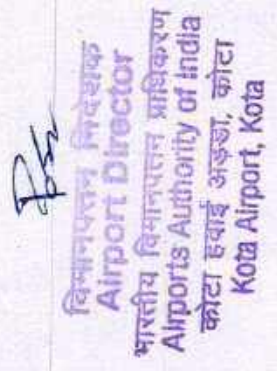 विमानपत्तन निदेशक
Airport Director
भारतीय विमानपत्तन प्राधिकरण
Airports Authority of India
कोटा हवाई अड्डा, कोटा
Kota Airport, Kota